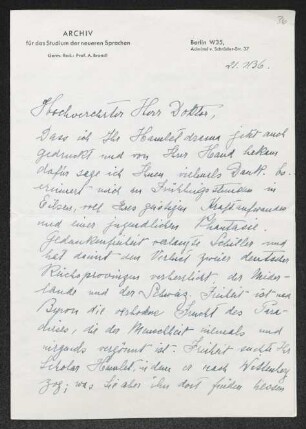 ARCHIV
für das Studium der neueren Sprachen
Germ. Red.: Prof. A. Brandl
Berlin W 35,
Admiral v. Schröder-Str. 37
Hochverehrter Herr Doktor,
Dass ich Ihr Hamletdrama jetzt auch
gedruckt und von Ihrer Hand bekam
dafür sage ich Ihnen vielmals Dank. Es
erinnert mich an Frühlingsstunden in
voll Ihres geistigen Kraftaufwandes
und einer jugendlichen Phantasie.
Gedankenfreiheit verlangte Schiller und
hat damit den Verlust zweier deutscher
Reichsprovinzen verherrlicht: der Nieder-
lande und der Schweiz. Freiheit ist nach
Byron die verbotene Frucht des Para-
dieses, die der Menschheit niemals und
nirgends vergönnt ist. Freiheit suchte Ihr
Scholar Hamlet, indem er nach Wittenberg
zog; was Sie aber ihn dort finden lassen